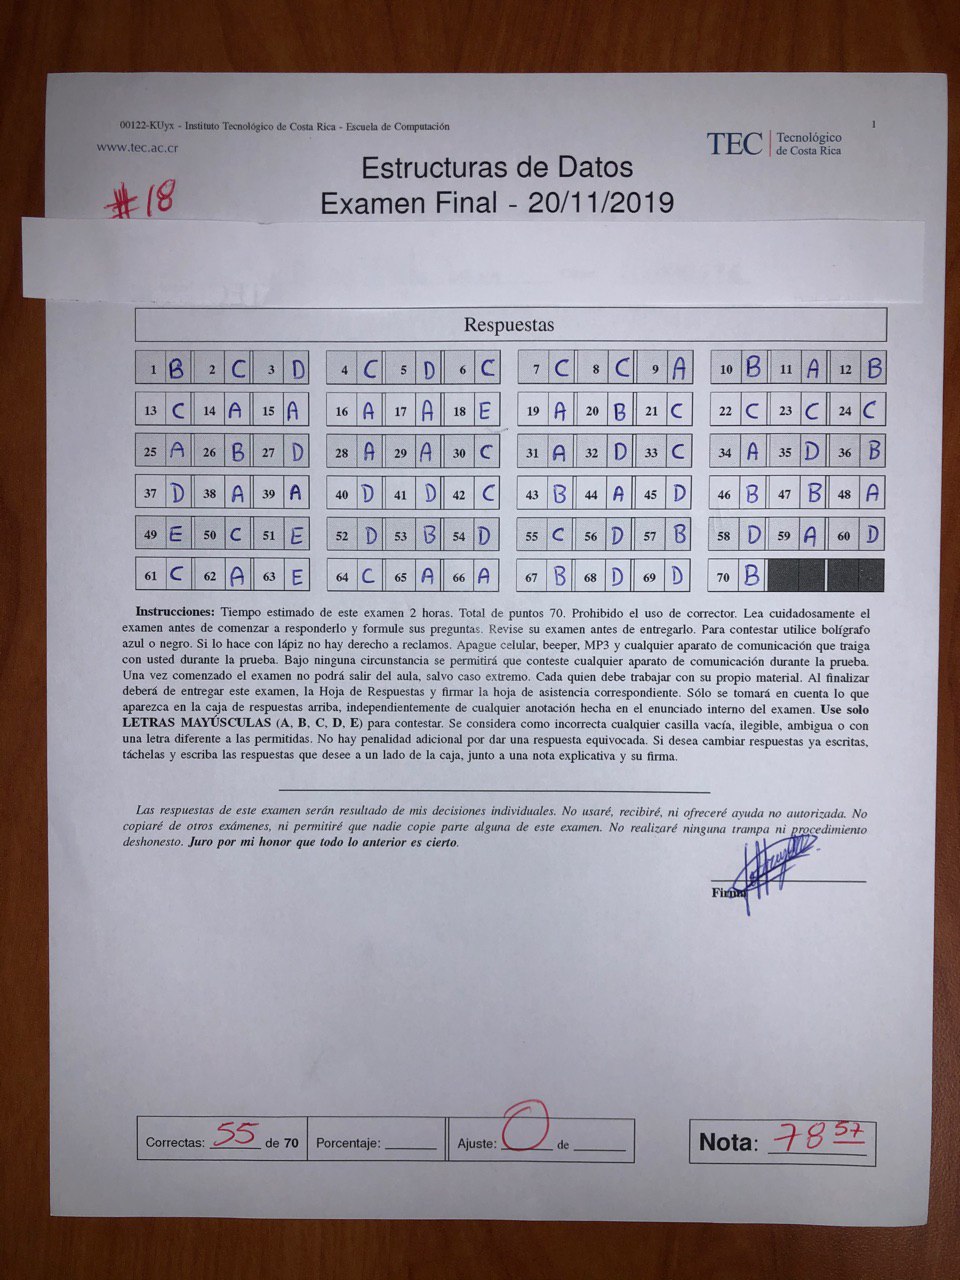 00122-KUyx - Instituto Tecnológico de Costa Rica - Escuela de Computación 1
www.tec.ac.cr
TEC | Tecnológico de Costa Rica
Estructuras de Datos
Examen Final - 20/11/2019
#18
Respuestas
1 B 2 C 3 D 4 C 5 D 6 C 7 C 8 C 9 A 10 B 11 A 12 B
13 C 14 A 15 A 16 A 17 A 18 E 19 A 20 B 21 C 22 C 23 C 24 C
25 A 26 B 27 D 28 A 29 A 30 C 31 A 32 D 33 C 34 A 35 D 36 B
37 D 38 A 39 A 40 D 41 D 42 C 43 B 44 A 45 D 46 B 47 B 48 A
49 E 50 C 51 E 52 D 53 B 54 D 55 C 56 D 57 B 58 D 59 A 60 D
61 C 62 A 63 E 64 C 65 A 66 A 67 B 68 D 69 D 70 B
Instrucciones: Tiempo estimado de este examen 2 horas. Total de puntos 70. Prohibido el uso de corrector. Lea cuidadosamente el
examen antes de comenzar a responderlo y formule sus preguntas. Revise su examen antes de entregarlo. Para contestar utilice bolígrafo
azul o negro. Si lo hace con lápiz no hay derecho a reclamos. Apague celular, beeper, MP3 y cualquier aparato de comunicación que traiga
con usted durante la prueba. Bajo ninguna circunstancia se permitirá que conteste cualquier aparato de comunicación durante la prueba.
Una vez comenzado el examen no podrá salir del aula, salvo caso extremo. Cada quien debe trabajar con su propio material. Al finalizar
deberá de entregar este examen, la Hoja de Respuestas y firmar la hoja de asistencia correspondiente. Sólo se tomará en cuenta lo que
aparezca en la caja de respuestas arriba, independientemente de cualquier anotación hecha en el enunciado interno del examen. Use solo
LETRAS MAYÚSCULAS (A, B, C, D, E) para contestar. Se considera como incorrecta cualquier casilla vacía, ilegible, ambigua o con
una letra diferente a las permitidas. No hay penalidad adicional por dar una respuesta equivocada. Si desea cambiar respuestas ya escritas,
táchelas y escriba las respuestas que desee a un lado de la caja, junto a una nota explicativa y su firma.
Las respuestas de este examen serán resultado de mis decisiones individuales. No usaré, recibiré, ni ofreceré ayuda no autorizada. No
copiaré de otros exámenes, ni permitiré que nadie copie parte alguna de este examen. No realizaré ninguna trampa ni procedimiento
deshonesto. Juro por mi honor que todo lo anterior es cierto.
Firma
Correctas: 55 de 70 Porcentaje: Ajuste: 0 de Nota: 78 57